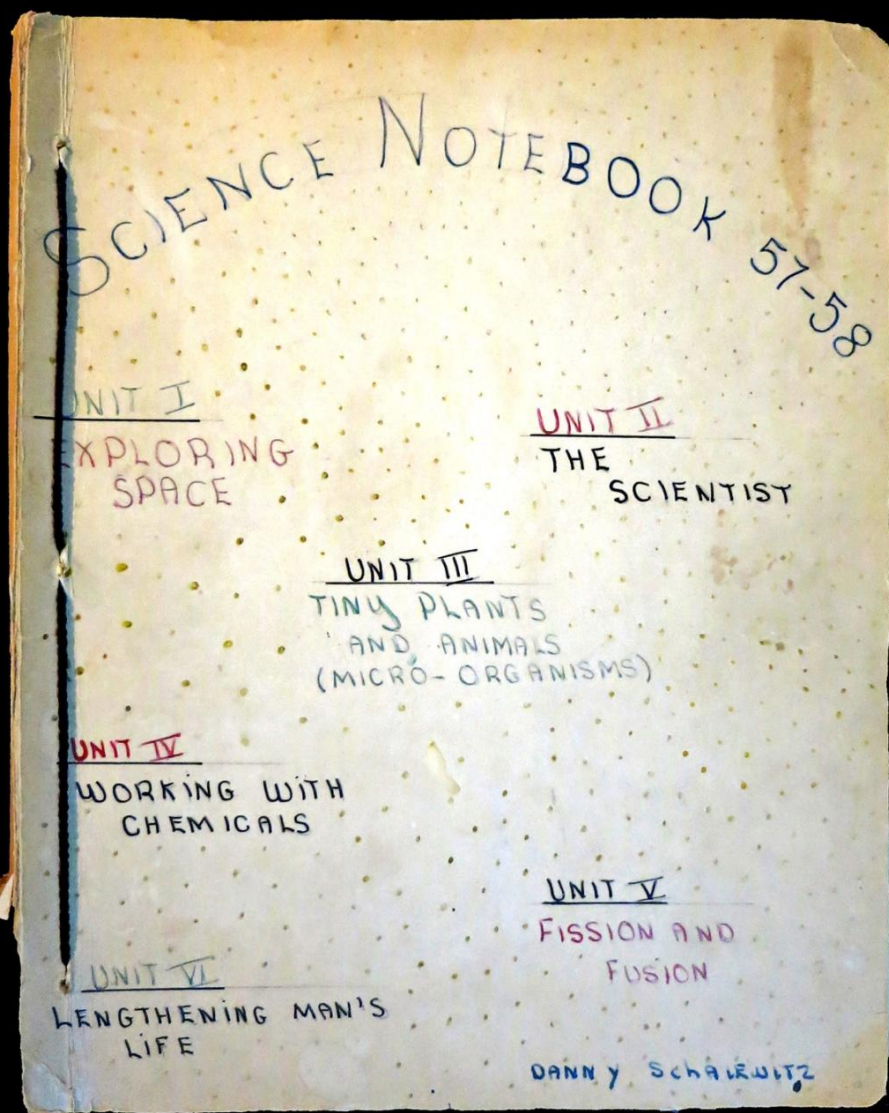 SCIENCE NOTEBOOK 57-58
UNIT I
EXPLORING
SPACE
UNIT II
THE
SCIENTIST
UNIT III
TINY PLANTS
AND ANIMALS
(MICRO-ORGANISMS)
UNIT IV
WORKING WITH
CHEMICALS
UNIT V
FISSION AND
FUSION
UNIT VI
LENGTHENING MAN'S
LIFE
DANNY SChAIEWITZ